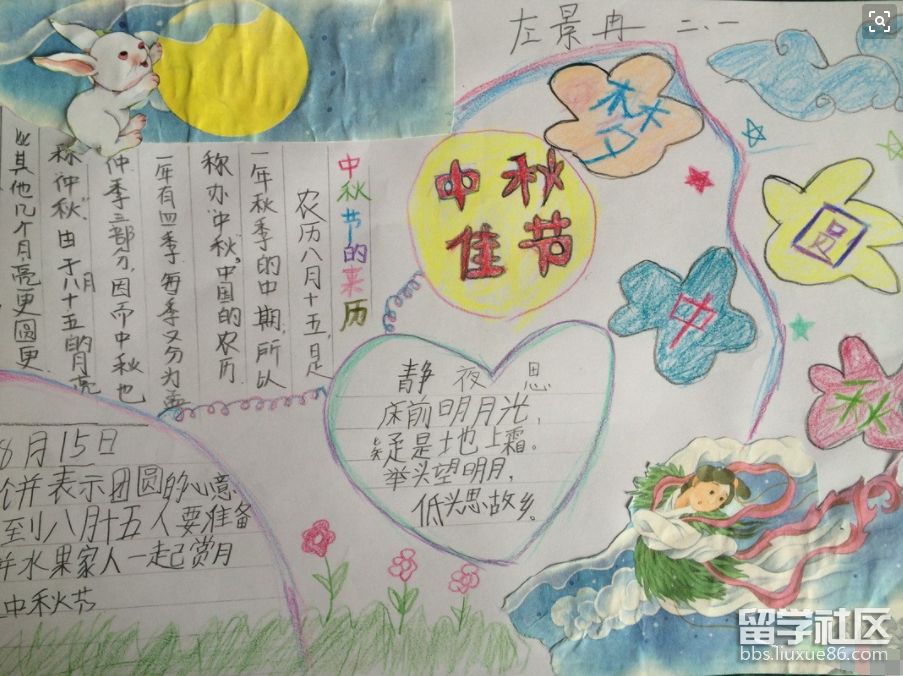 左景冉 二.一
中秋佳节
梦
圆
中
秋
中秋节的来历
农历八月十五,是
一年秋季的中期,所以
称办"中秋"。中国的农历
一年有四季,每季又分为孟
仲季三部分,因而中秋也
称"仲秋"。由于八月十五的月亮
比其他几个月亮更圆更
静夜思
床前明月光,
疑是地上霜。
举头望明月,
低头思故乡。
8月15日
饼表示团圆的心意
到八月十五人要准备
水果家人一起赏月
中秋节
留学社区
bbs.liuxue86.com